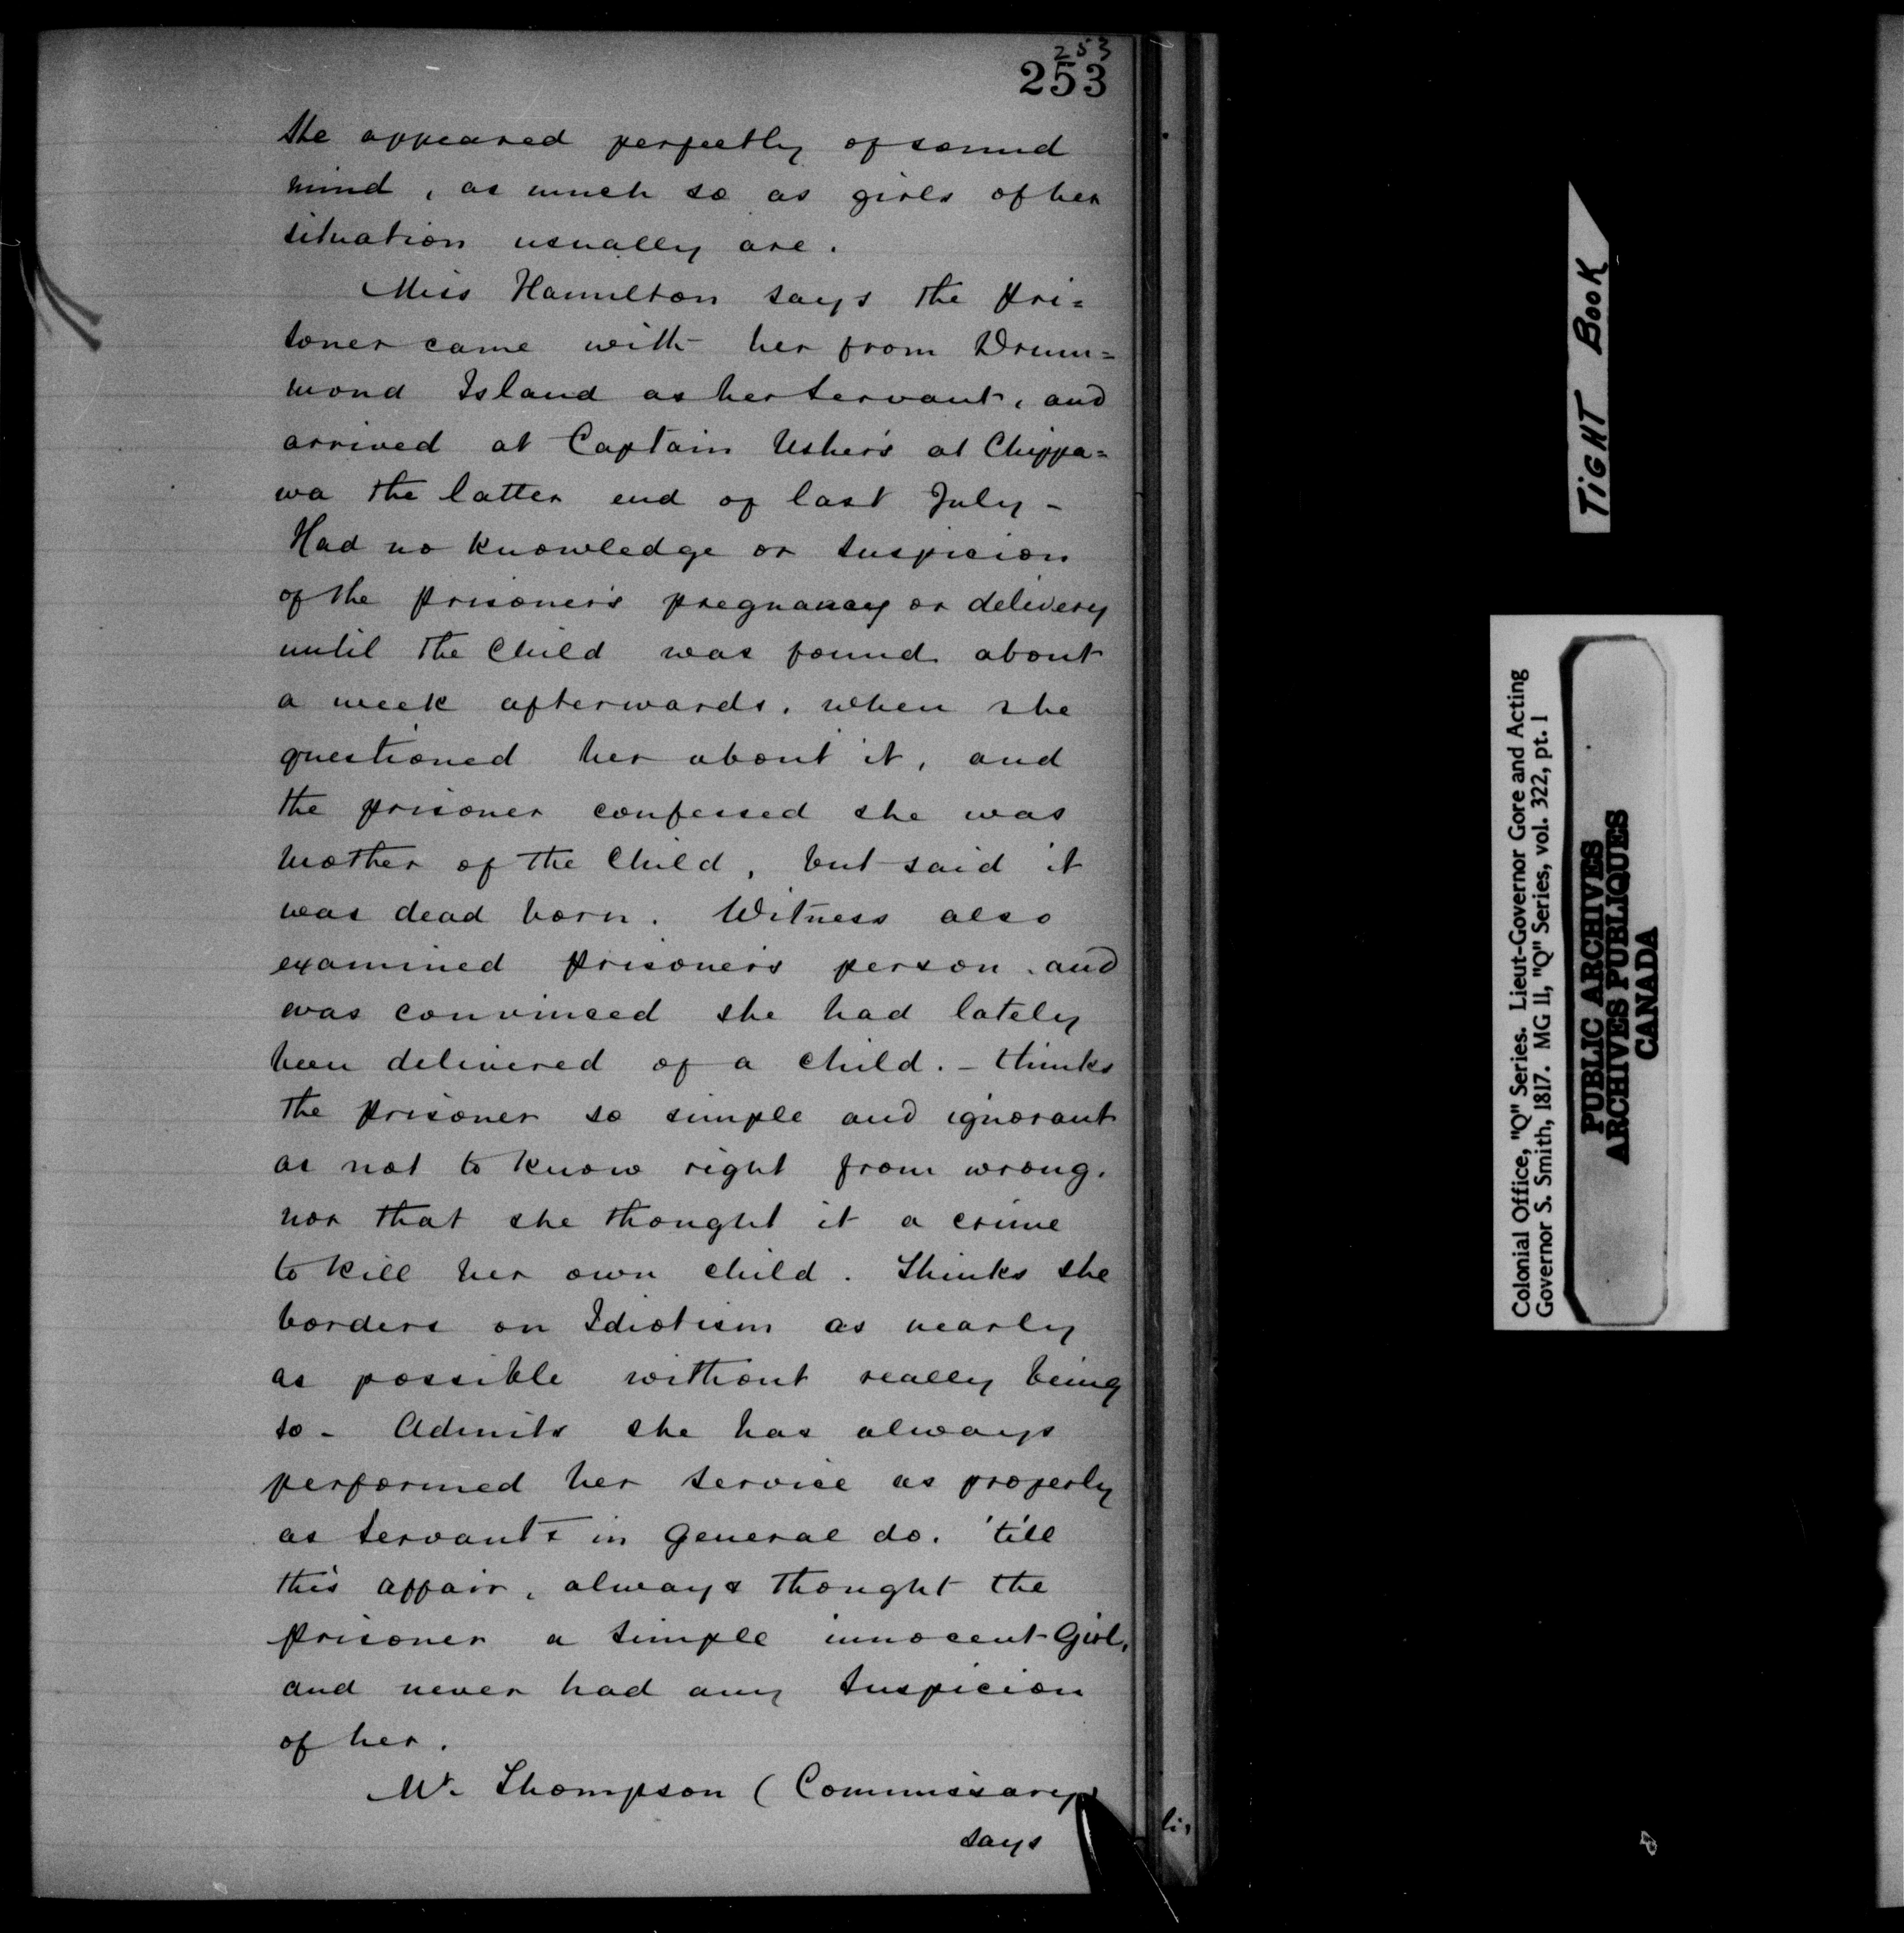 253
253
She appeared perfectly of sound
mind, as much so as girls of her
situation usually are.
Miss Hamilton says the pri=
soner came with her from Drum=
mond Island as her servant, and
arrived at Captain Usher's at Chippa=
wa the latter end of last July -
Had no knowledge or suspicion
of the prisoner's pregnancy or delivery
until the Child was found about
a week afterwards, when she
questioned her about it, and
the prisoner confessed she was
mother of the Child, but said it
was dead born. Witness also
examined prisoner's person, and
was convinced she had lately
been delivered of a child. - thinks
the prisoner so simple and ignorant
as not to know right from wrong,
nor that she thought it a crime
to kill her own child. Thinks she
borders on Idiotism as nearly
as possible without really being
so - Admits she has always
performed her service as properly
as servants in general do. 'till
this affair, always thought the
prisoner a simple innocent Girl,
and never had any suspicion
of her.
Mr. Thompson (Commissary)
says
TIGHT BOOK
Colonial Office, "Q" Series. Lieut-Governor Gore and Acting
Governor S. Smith, 1817. MG 11, "Q" Series, vol. 322, pt. 1
PUBLIC ARCHIVES
ARCHIVES PUBLIQUES
CANADA